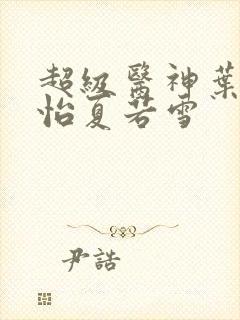 超級醫神葉
怡夏若雪
尹誥